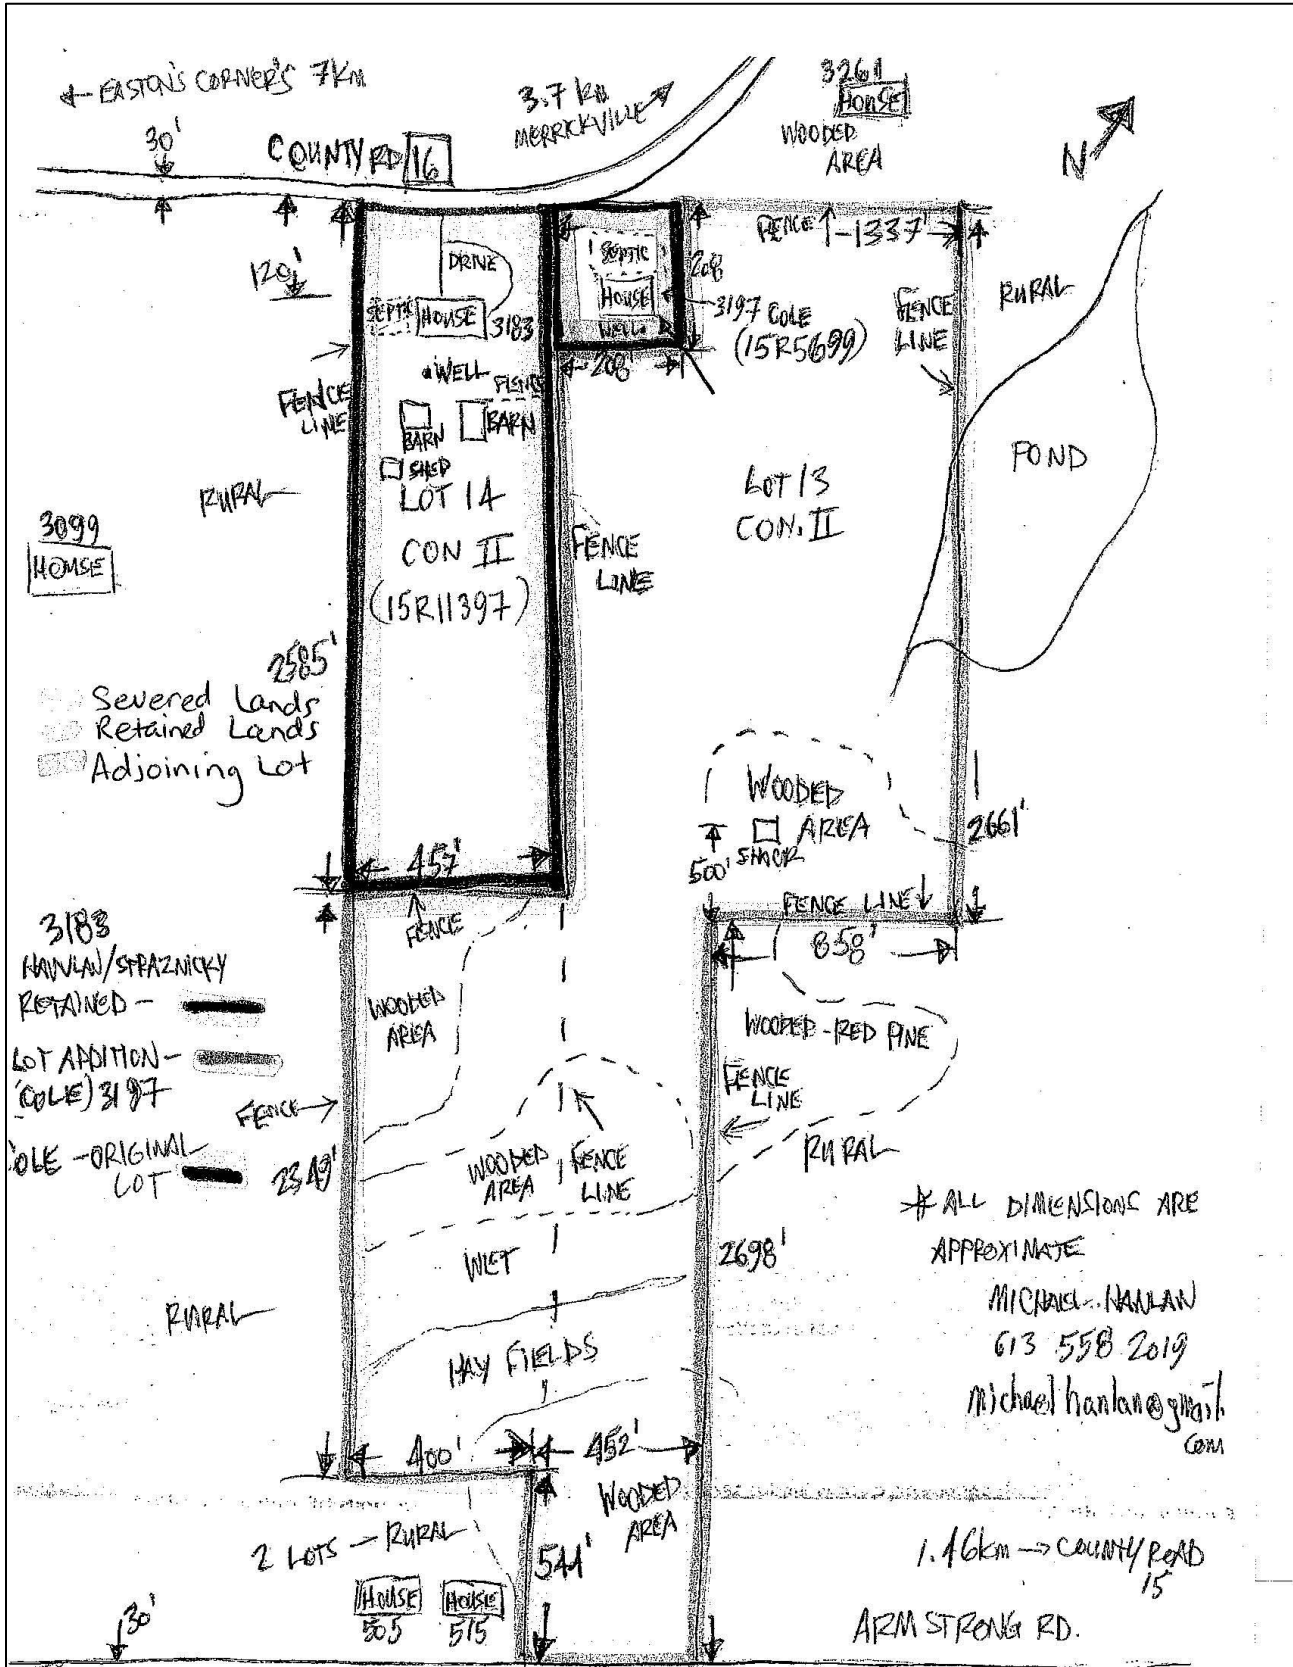 ← EASTON'S CORNER'S 7KM
3.7 KM
MERRICKVILLE
3261
HOUSE
WOODED
AREA
N
30'
COUNTY RD 16
FENCE
1337'
120'
DRIVE
SEPTIC
HOUSE
3183
SEPTIC
HOUSE
WELL
208
208'
3197 COLE
(15R5699)
FENCE
LINE
RURAL
FENCE
LINE
WELL
FENCE
BARN
BARN
SHED
LOT 14
CON II
(15R11397)
FENCE
LINE
LOT 13
CON. II
POND
RURAL
3099
HOUSE
2585'
Severed Lands
Retained Lands
Adjoining Lot
WOODED
AREA
SHACK
500'
2661'
457'
FENCE
FENCE LINE
858'
3183
HANLAN/STRAZNICKY
RETAINED -
LOT ADDITION -
(COLE) 3197
OLE - ORIGINAL
LOT
WOODED
AREA
WOODED - RED PINE
FENCE
LINE
FENCE →
2349'
WOODED
AREA
FENCE
LINE
RURAL
WET
2698'
* ALL DIMENSIONS ARE
APPROXIMATE
MICHAEL HANLAN
613 558 2019
michael hanlan@gmail.
com
RURAL
HAY FIELDS
400'
452'
WOODED
AREA
2 LOTS - RURAL
544'
HOUSE
505
HOUSE
515
1.46km → COUNTY ROAD
15
30'
ARMSTRONG RD.